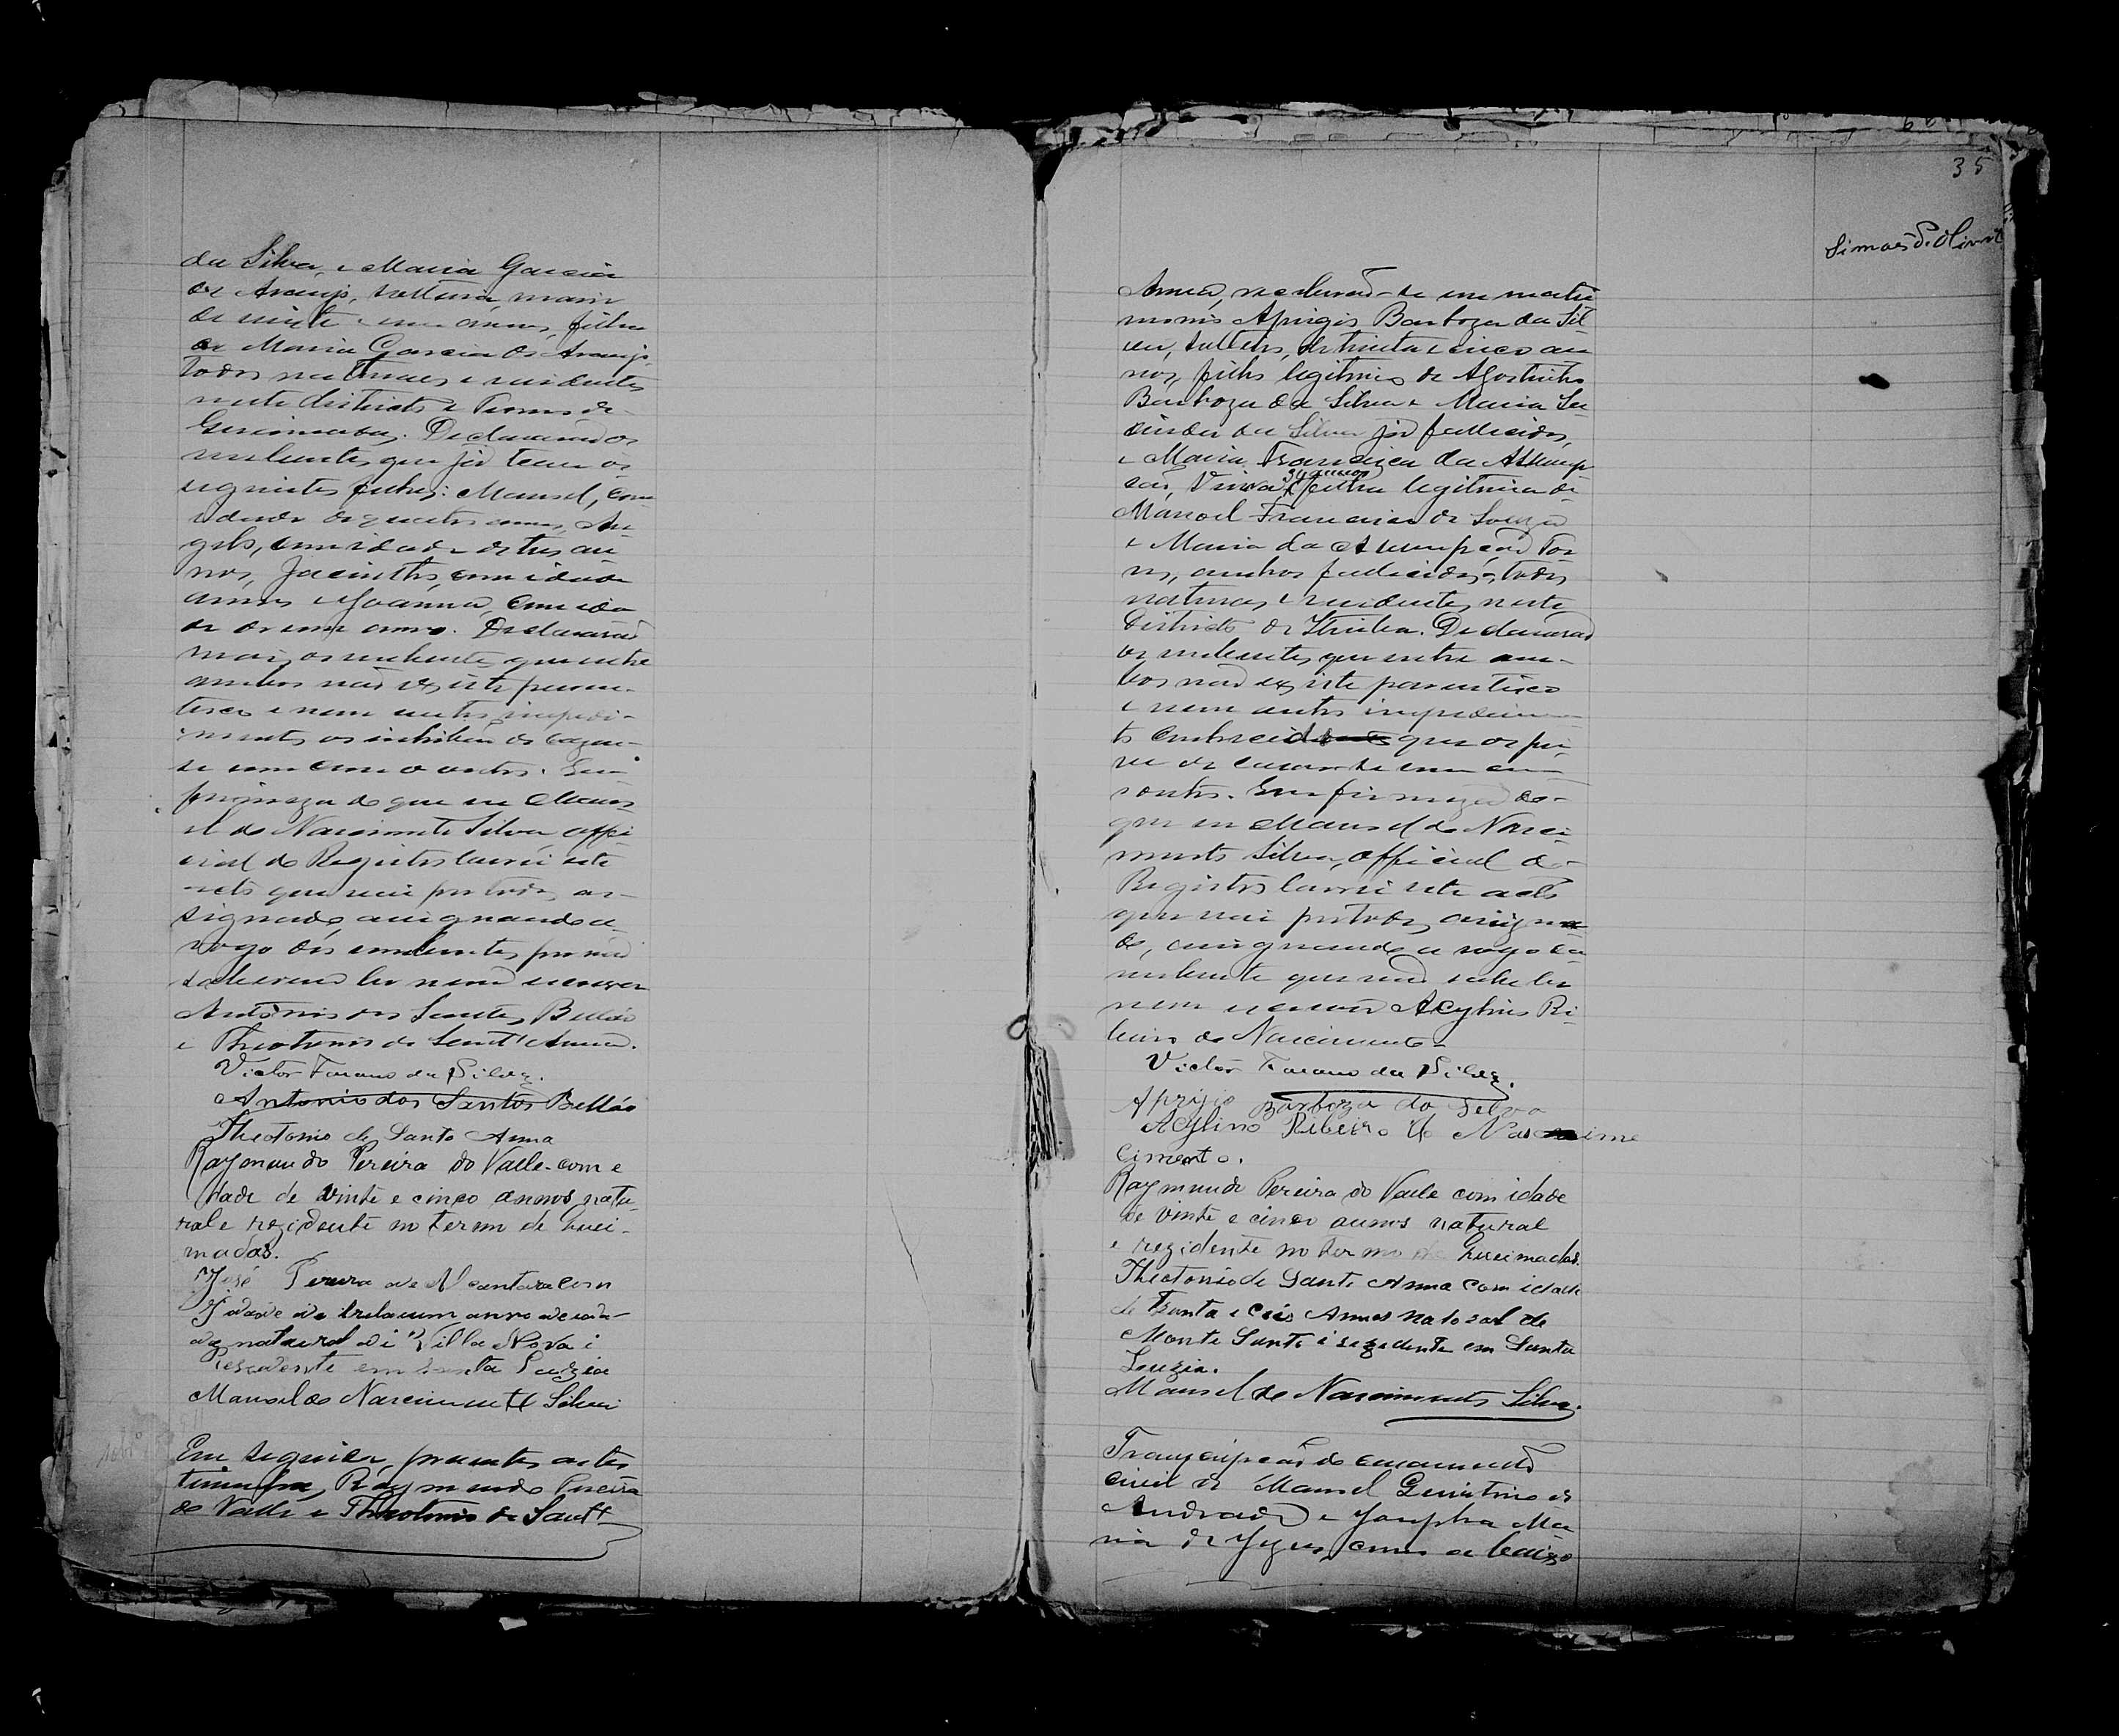 da Silva, e Maria Garcia
de Araujo, solteira, maior
de vinte e um annos, filha
de Maria Garcia de Araujo
todos naturaes e residentes
neste districto e Termo de
Declararão os
nubentes que já tem os
seguintes filhos: Manoel, com
idade de quatro annos, An
gelo, com idade de tres an
nos, Jacintho, com idade
annos e Joanna, com ida
de de um anno. Declararão
mais os nubentes que entre
ambos não existe paren-
tesco e nem outro impedi-
mento os inhiba de cazar-
se um com o outro. Em
firmeza do que eu Mano
el do Nascimento Silva, offi
cial do Registro lavrei este
acto que vai por todos as-
signado, assignando a
rogo dos nubentes por não
saberem ler nem escrever
Antonio dos Santos Bellão
e Theotonio de Sant'Anna.
Victor da Silva.
Antonio dos Santos Bellão
Theotonio de Santo Anna
Raymundo Pereira do Valle com e
dade de vinte e cinco annos natu-
ral e rezidente no termo de Quei-
madas.
José Pereira de Alcantara com
Idade de trita um anno de ida-
de natural di Villa Nova i
resedente em Santa Luzia
Manoel do Nascimento Silva
Em seguida, presentes as tes
timunhas, Raymundo Pereira
do Valle e Theotonio de Sant'
35
Simões d. Olivra
Anna, receberão-se em matri
monio Aprigio Barboza da Sil
va, solteiro, de trinta e cinco an
nos, filho legitimo de Agostinho
Barboza da Silva e Maria Lu
cinda da Silva já fallecidos,
e Maria Francisca da Assump
annos
ção, Viuva, filha legitima de
Manoel Francisco de Souza
e Maria da Assumpção Tor
res, ambos fallecidos, todos
naturaes e residentes neste
Districto de Itiuba. Declararão
os nubentes que entre am-
bos não existe parentesco
e nem outro impedimen
to conhecido que os pri
ve de cazar-se um com
o outro. Em firmeza do
que eu Manoel do Nasci
mento Silva, official do
Registro lavrei este acto
que vai por todos assigna
do, assignando a rogo da
nubente que não sabe ler
nem escrever Acylino Ri
beiro do Nascimento
Victor da Silva.
Aprijio Barboza da Selva
Acylino Ribeiro do Nascime
cimento.
Raymundo Pereira do Valle com idade
de vinte e cinco annos natural
e rezidente no termo de Queimadas.
Theotonio de Santo Anna com idade
de Trenta e Ceis Annos natoral de
Monte Santo i rezedente em Santa
Louzia.
Manoel do Nascimento Silva.
Transcripção do cazamento
civil de Manoel Quintino de
Andrade e Josepha Ma
ria de Jezus, como a baixo